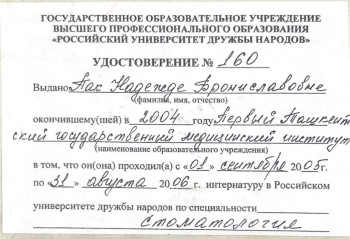 ГОСУДАРСТВЕННОЕ ОБРАЗОВАТЕЛЬНОЕ УЧРЕЖДЕНИЕ
ВЫСШЕГО ПРОФЕССИОНАЛЬНОГО ОБРАЗОВАНИЯ
«РОССИЙСКИЙ УНИВЕРСИТЕТ ДРУЖБЫ НАРОДОВ»
УДОСТОВЕРЕНИЕ № 160
Выдано Пас Надежде Брониславовне
(фамилия, имя, отчество)
окончившему(шей) в 2004 году Первый Ташкент
ский государственный медицинский институт
(наименование образовательного учреждения)
в том, что он(она) проходил(а) с «01» сентября 2005г.
по «31» августа 2006 г. интернатуру в Российском
университете дружбы народов по специальности
стоматология